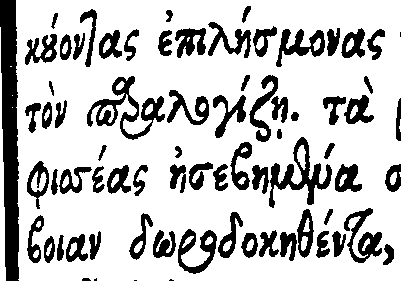 κούοντας ἐπιλήσμονας
τὸν παραλογίζῃ. τὰ
φισσέας ἠσεβημένα
βοιαν δωροδοκηθέντα,